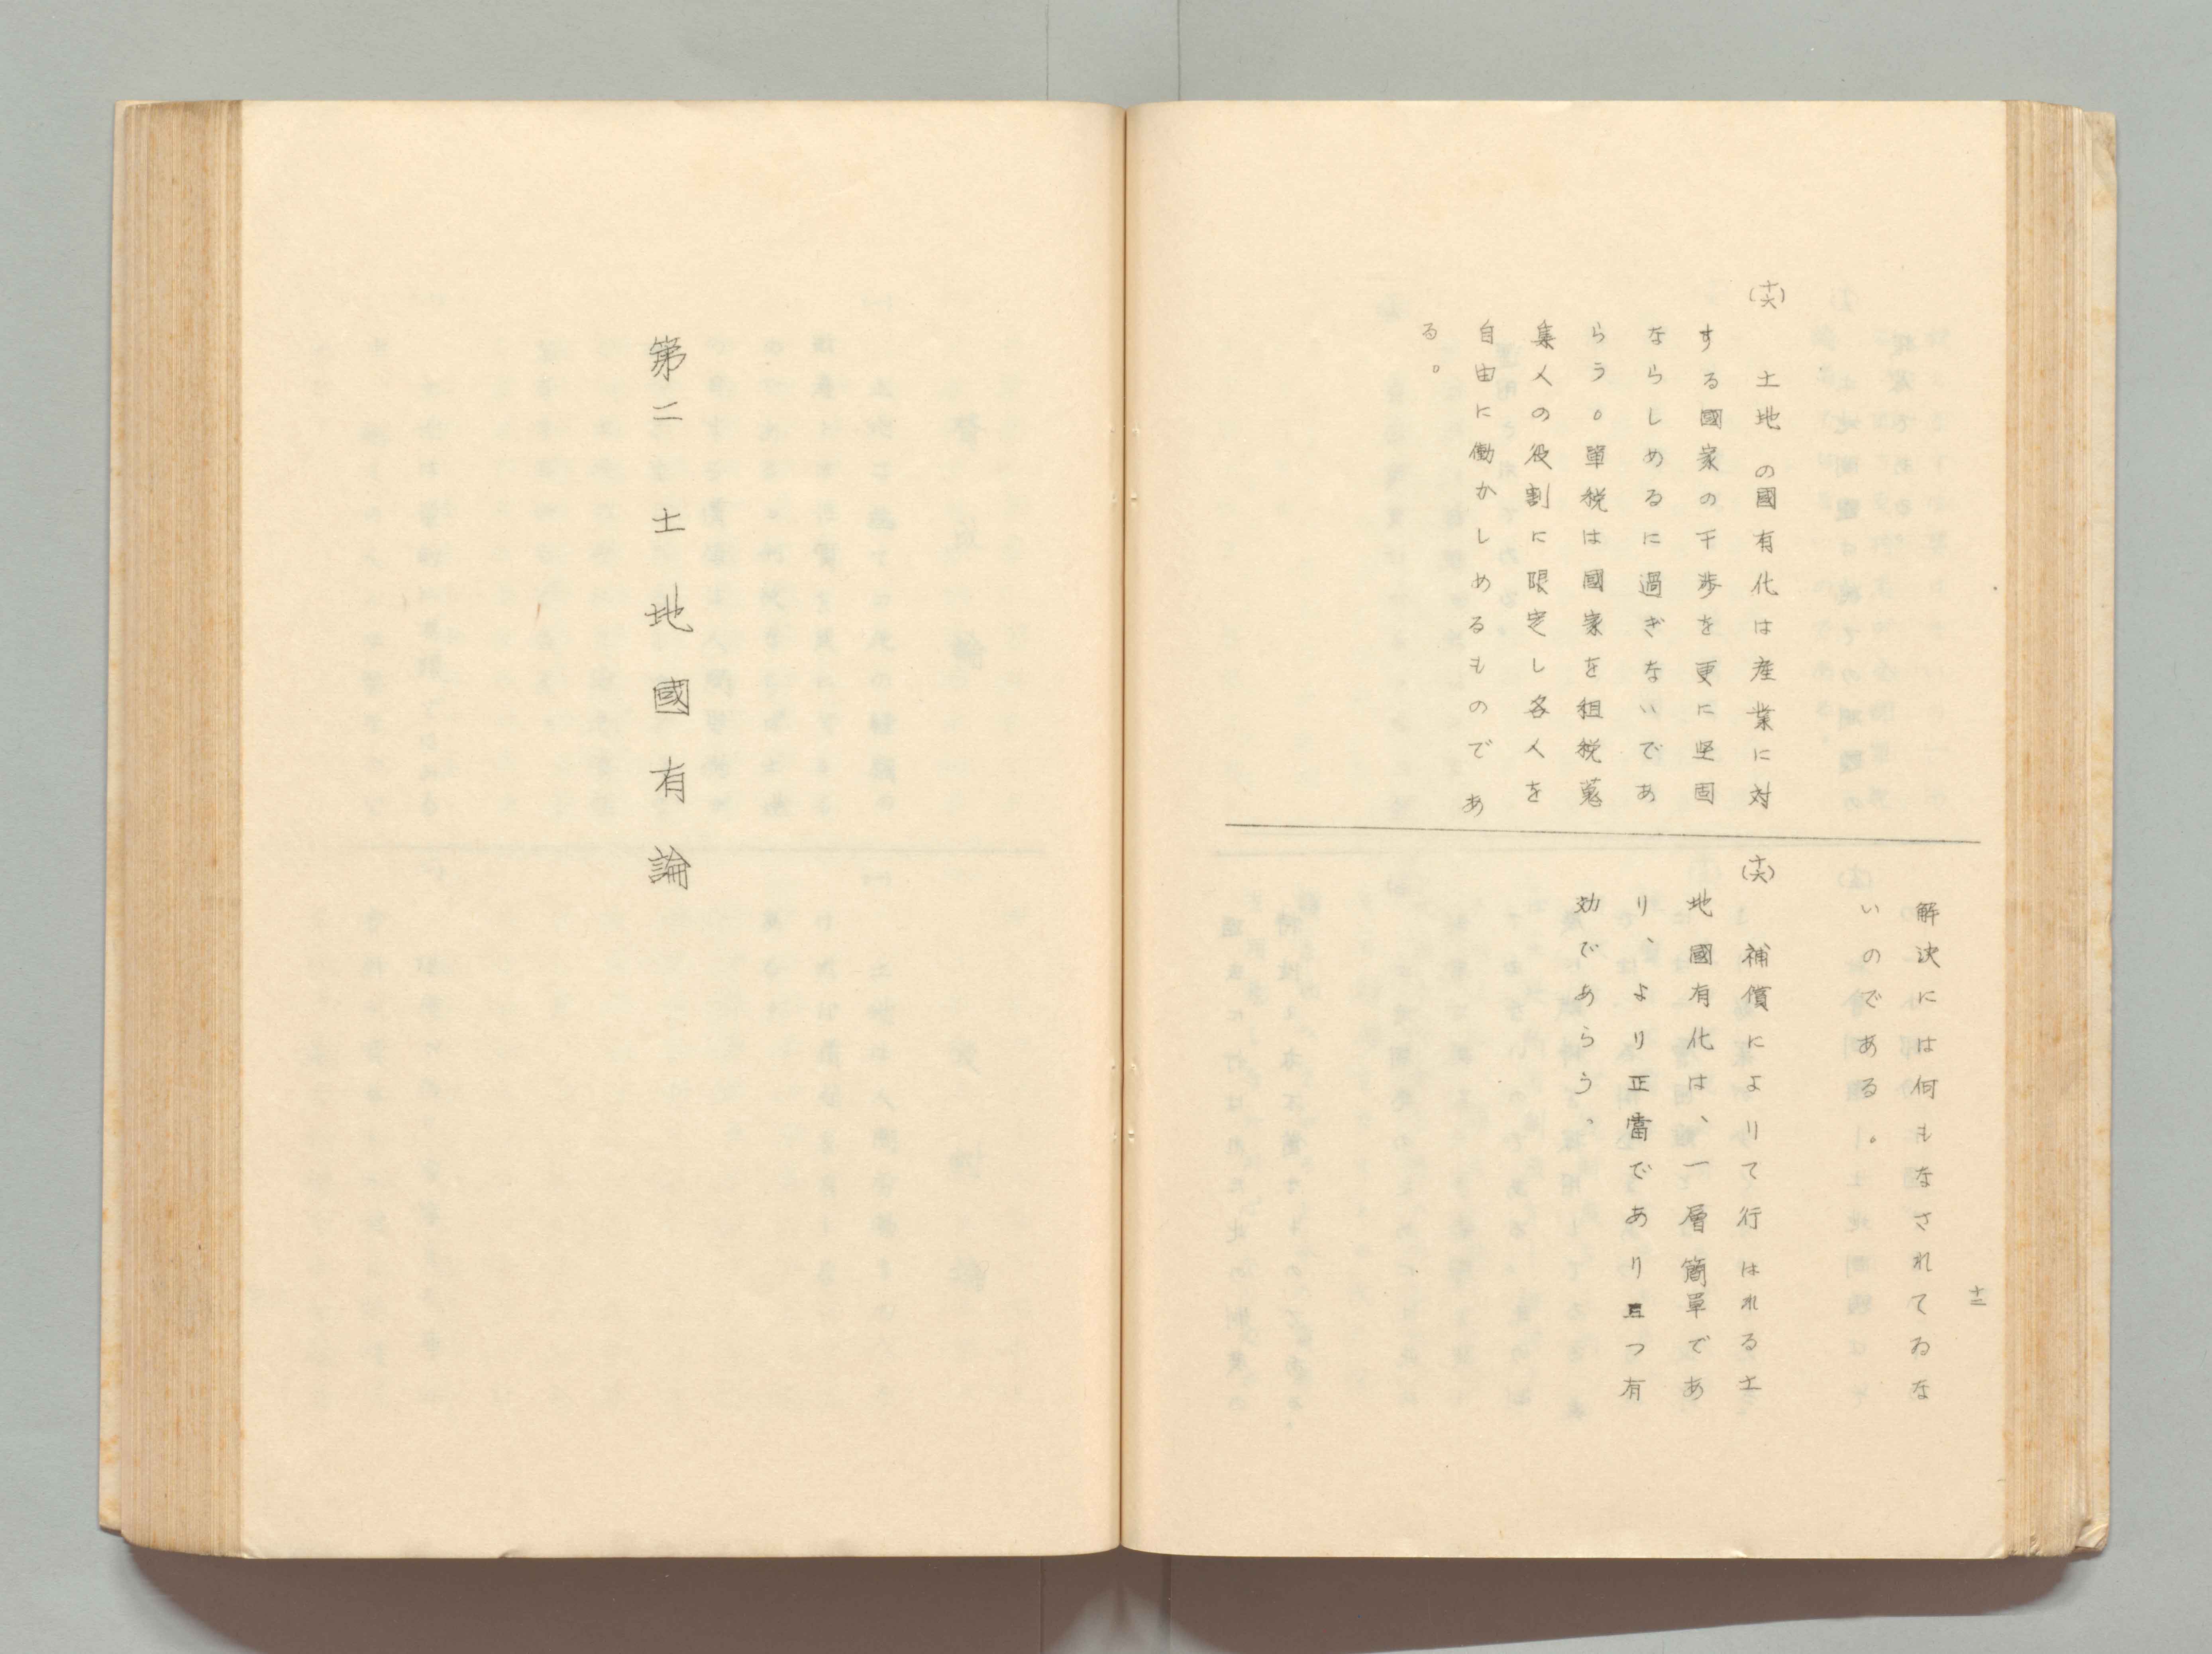 十二
(十六) 土地の國有化は産業に対
する國家の干渉を更に坚固
ならしめるに過ぎないであ
らう。單税は國家を租税蒐
集人の役割に限定し各人を
自由に働かしめるものであ
る。
解決には何もなされてゐな
いのである。
(十六) 補償によりて行はれる土
地國有化は、一層簡單であ
り、より正當であり且つ有
効であらう、
第二 土地國有論